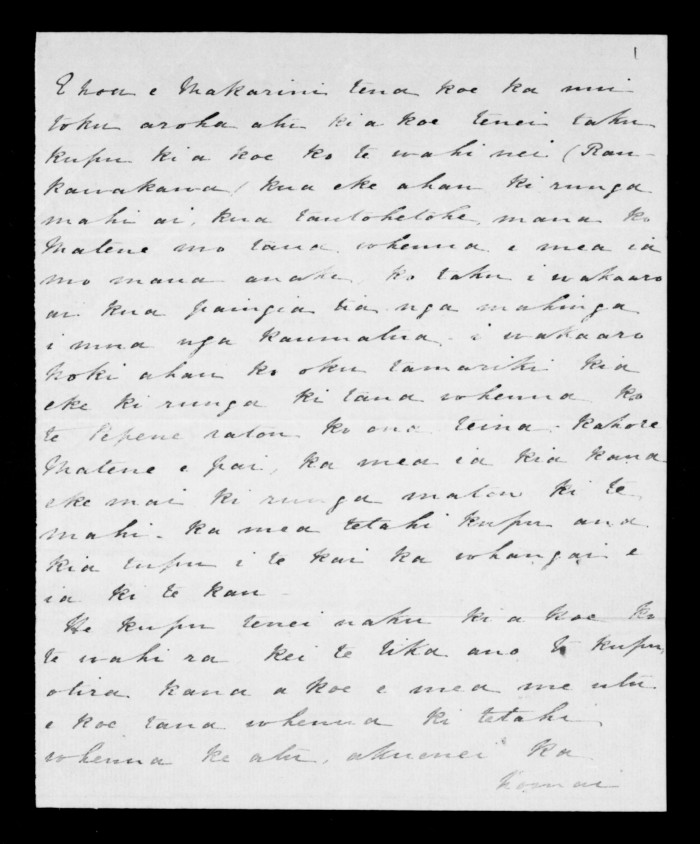 1
E hoa e Makarini tena koe ka nui
toku aroha atu ki a koe tenei taku
kupu ki a koe ko te wahi nei (Rau-
kawakawa) kua eke ahau ki runga
mahi ai, kua tautohetohe, mana ko
Matene mo tana whenua e mea ia
mo mana anake, ko taku i wakaaro
ai kua paingia tia nga mahinga
i mua nga kaumatua. i wakaaro
hoki ahau ko oku tamariki kia
eke ki runga ki tana whenua ko
te Pepene raton ko ona teina. Kahore
Matene e pai, ka mea ia kia kaua
eke mai ki runga maton ki te
mahi. Ka mea tetahi kupu ana
kia tupu i te kai ka whangai e
ia ki te kau.
He kupu tenei naku ki a koe ko
te wahi ra kei te tika ano to kupu
otira kaua a koe e mea me utu
e koe tana whenua ki tetahi
whenua ke atu, akuenei ka
homai